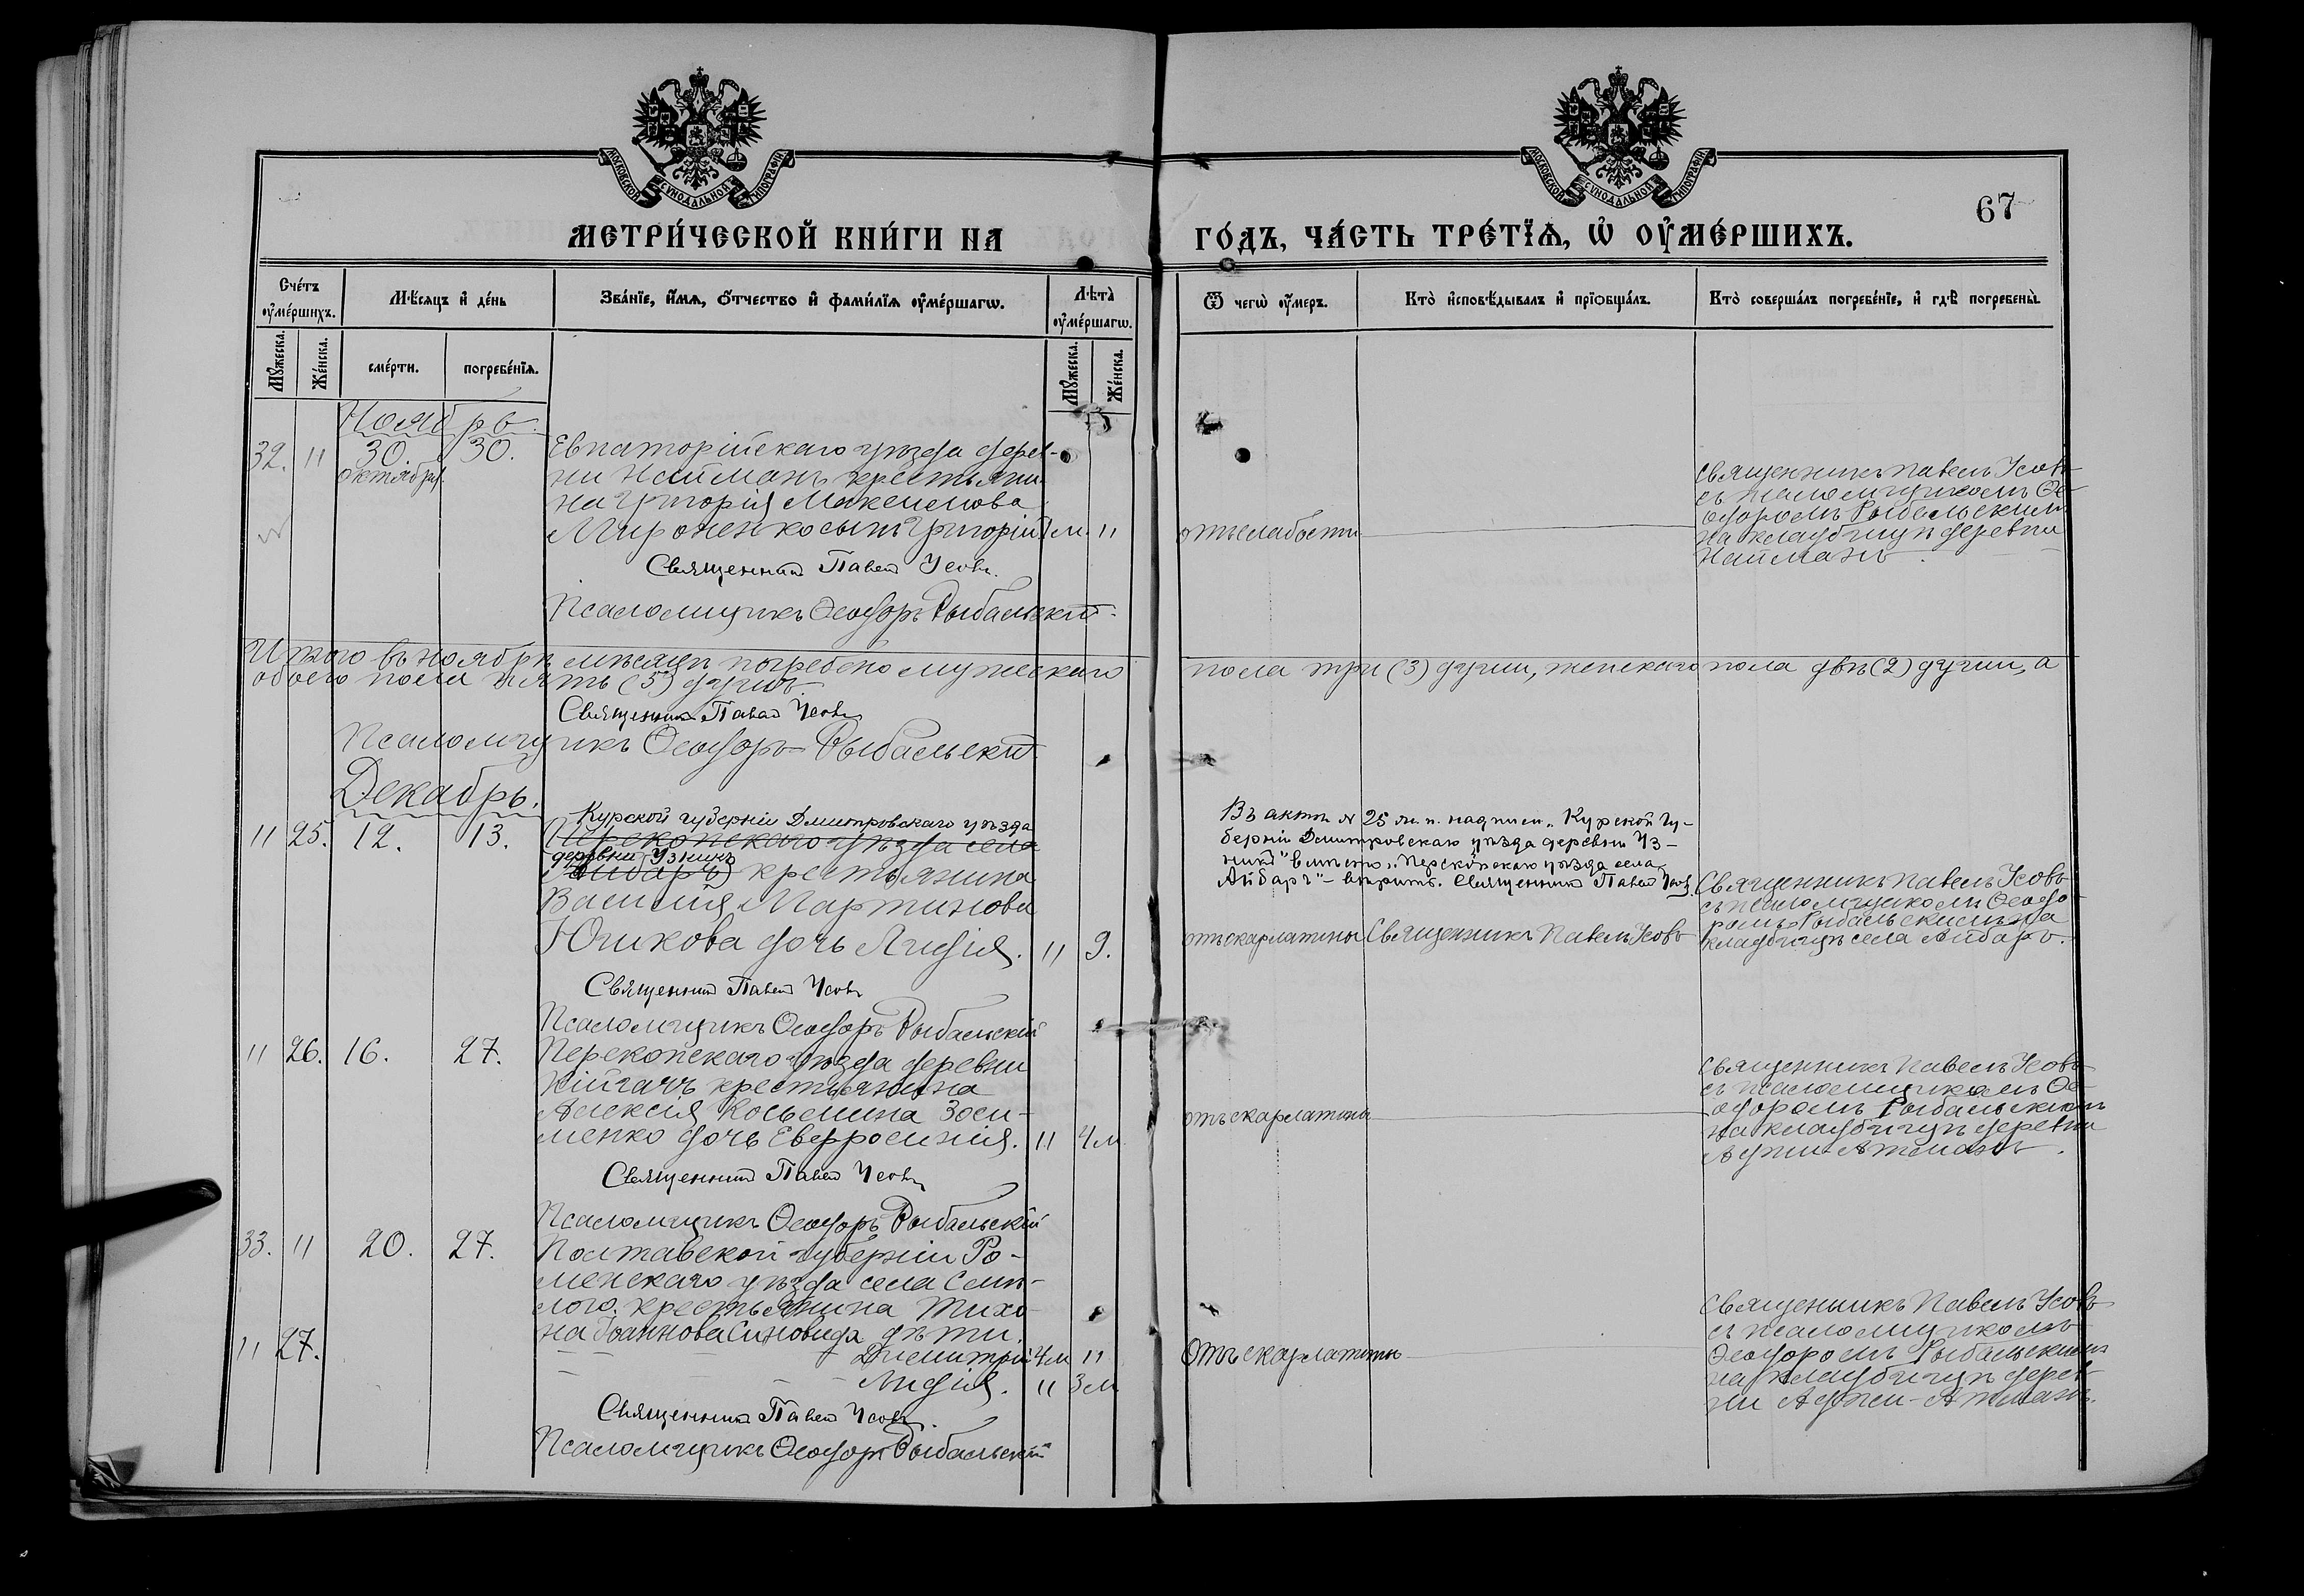 МОСКОВСКОЙ СѴНОДАЛЬНОЙ ТИПОГРАФІИ
МОСКОВСКОЙ СѴНОДАЛЬНОЙ ТИПОГРАФІИ
67
МЕТРИ́ЧЕСКОЙ КНИ́ГИ НА
ГО́ДЪ, ЧА́СТЬ ТРЕ́ТЇѦ, Ѡ҆ ОУ҆МЕ́РШИХЪ.
Сче́тъ оу҆ме́ршихъ.
Мѣ́сяцъ и҆ де́нь
Зва́нїе, и҆́мѧ, ѻ҆́тчество и҆ фами́лїѧ оу҆ме́ршагѡ.
Лѣта̀ оу҆ме́ршагѡ.
Ѿ чегѡ̀ оу҆́меръ.
Кто̀ и҆сповѣ́дывалъ и҆ прїѡбща́лъ.
Кто̀ соверша́лъ погребе́нїе, и҆ гдѣ̀ погребены̀.
Мꙋ́жеска.
Же́нска.
сме́рти.
погребе́нїѧ.
Мꙋ́жеска.
Же́нска.
Ноябрь.
32. " 30. октября. 30.
Евпаторійскаго уѣзда дерев-
ни Найманъ крестьяни-
на Григорія Максимова
Мироненко сынъ Григорій 1 м. "
отъ слабости
Священникъ Павелъ Усовъ
съ псаломщикомъ Ѳе-
одоромъ Рыбальскимъ
на кладбищѣ деревни
Найманъ.
Священникъ Павелъ Усовъ.
Псаломщикъ Ѳеодоръ Рыбальскій.
Итого въ ноябрѣ мѣсяцѣ погребено мужескаго пола три (3) души, женскаго пола двѣ (2) души, а
обоего пола пять (5) душъ.
Священникъ Павелъ Усовъ
Псаломщикъ Ѳеодоръ Рыбальскій
Декабрь.
" 25. 12. 13.
Курской губерніи Дмитровскаго уѣзда
Перекопскаго уѣзда села
деревни Узникъ
(Айбаръ) крестьянина
Василія Мартинова
Юшкова дочь Лидія. " 9.
Въ актѣ № 25 ж. п. надписи „Курской Гу-
берніи Дмитровскаго уѣзда деревни Уз-
никъ" вмѣсто „Перекопскаго уѣзда села
Айбаръ" – вѣрить. Священникъ Павелъ Усовъ.
отъ скарлатины Священникъ Павелъ Усовъ
Священникъ Павелъ Усовъ
съ псаломщикомъ Ѳеодо-
ромъ Рыбальскимъ на
кладбищѣ села Айбаръ.
Священникъ Павелъ Усовъ
Псаломщикъ Ѳеодоръ Рыбальскій
" 26. 16. 27.
Перекопскаго уѣзда деревни
Кійгачъ крестьянина
Алексія Косьмина Зоси-
менко дочь Евфросинія. " 4 м
отъ скарлатины
Священникъ Павелъ Усовъ
съ псаломщикомъ Ѳе-
одоромъ Рыбальскимъ
на кладбищѣ деревни
Аджи-Атманъ.
Священникъ Павелъ Усовъ
Псаломщикъ Ѳеодоръ Рыбальскій
33. " 20. 27.
Полтавской губерніи Ро-
менскаго уѣзда села Смѣ-
лого крестьянина Тихо-
на Іоаннова Синовида дѣти.
Димитрій 4 м "
" 27.
Лидія. " 3 м
Отъ скарлатины
Священникъ Павелъ Усовъ
съ псаломщикомъ
Ѳеодоромъ Рыбальскимъ
на кладбищѣ дерев-
ни Аджи-Атманъ.
Священникъ Павелъ Усовъ.
Псаломщикъ Ѳеодоръ Рыбальскій